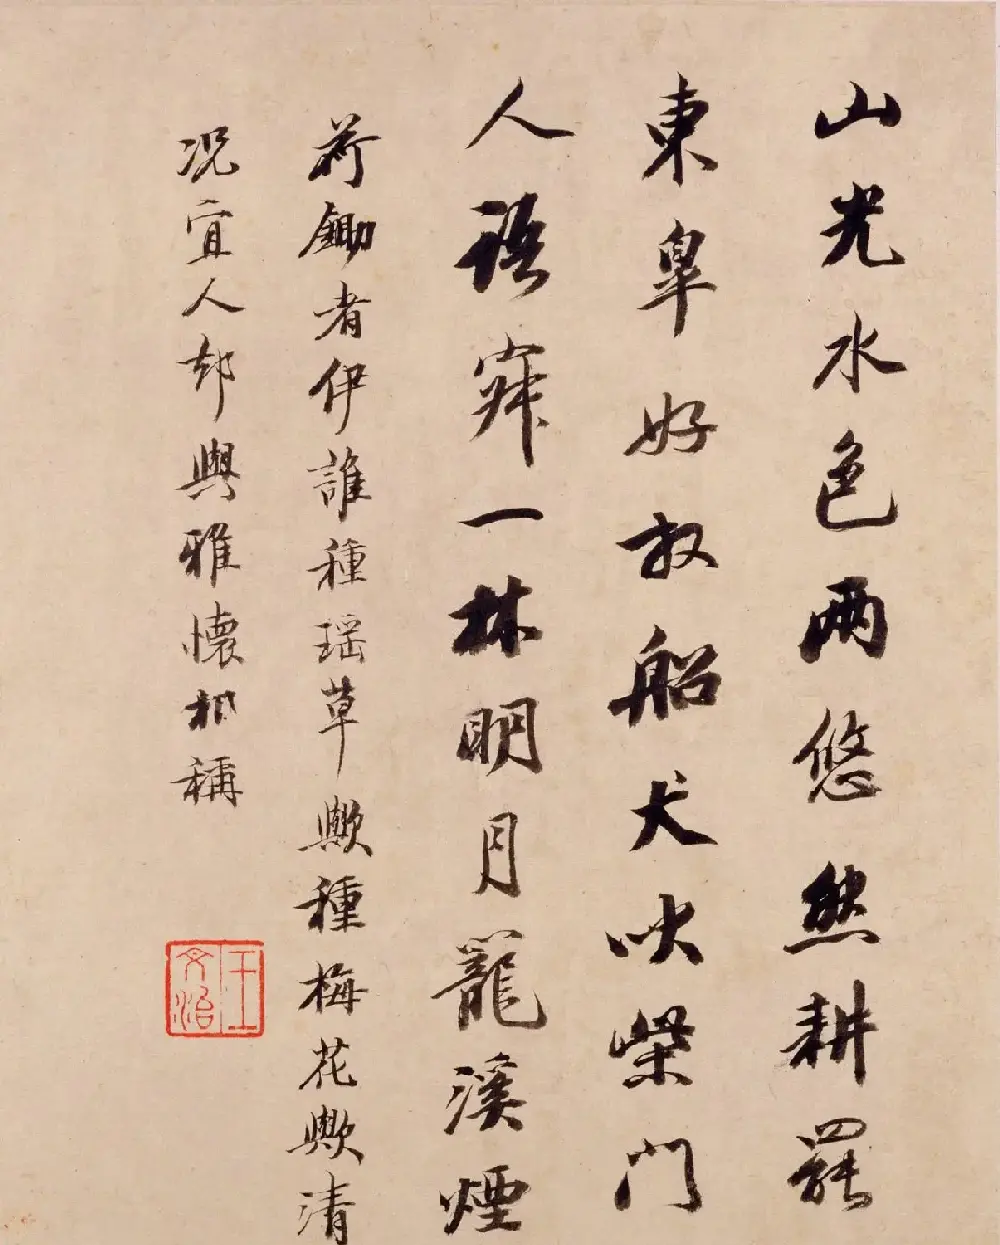 山光水色兩悠然耕罷
東臯好放船犬吠柴門
人語寂一林明月籠溪煙
荷鋤者伊誰種瑶草歟種梅花歟清
况宜人却與雅懷相稱
王文治